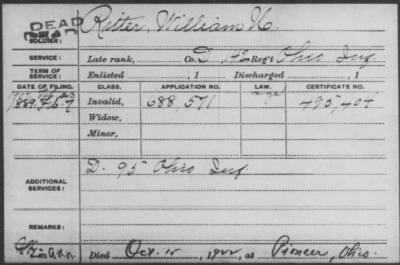 DEAD
Ritter, William H.
SOLDIER:
SERVICE: Late rank, Co. D, 42 Reg't Ohio Inf.
TERM OF SERVICE: Enlisted , 1 Discharged , 1
DATE OF FILING. CLASS. APPLICATION NO. LAW. CERTIFICATE NO.
Invalid, 688,571 495,404
Widow,
Minor,
ADDITIONAL SERVICES: D. 95 Ohio Inf
REMARKS:
Died Oct. 15, 1922 at Pioneer, Ohio.